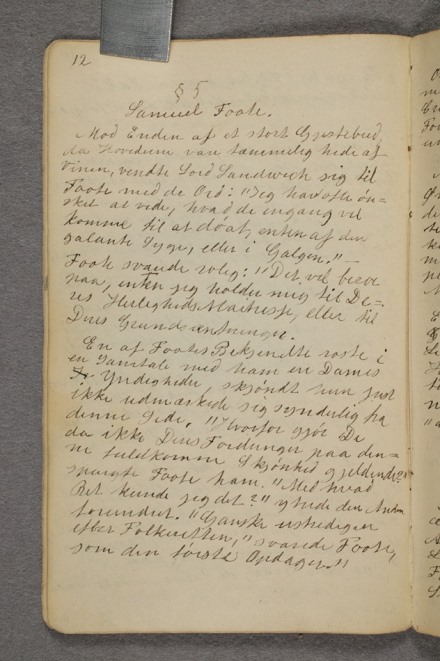 12
§ 5
Samuel Foote.
Mod Enden af et stort Gjæstebud,
da Hovederne vare temmelig hede af
Vinen, vendte Lord Sandwich sig til
Foote med de Ord: "Jeg har ofte øn-
sket at vide, hvad De engang vil
komme til at dø af, enten af den
galante Syge, eller i Galgen." —
Foote svarede rolig: "Det vil beroe
paa, enten jeg holder mig til De-
res Herligheds Maitresse, eller til
Deres Grundsætninger.
En af Footes Bekjendte roste i
en Samtale med ham en Dames
Yndigheder, skjøndt hun just
ikke udmærkede sig synderlig fra
denne Side. "Hvorfor gjør De
da ikke Deres Fordringer paa den-
ne fuldkomne Skjønhed gjeldende?"
spurgte Foote ham. "Med hvad
Ret kunde jeg det?" ytrede den Anden
forundret. "Ganske
efter Folkeretten," svarede Foote,
som den første Opdager."